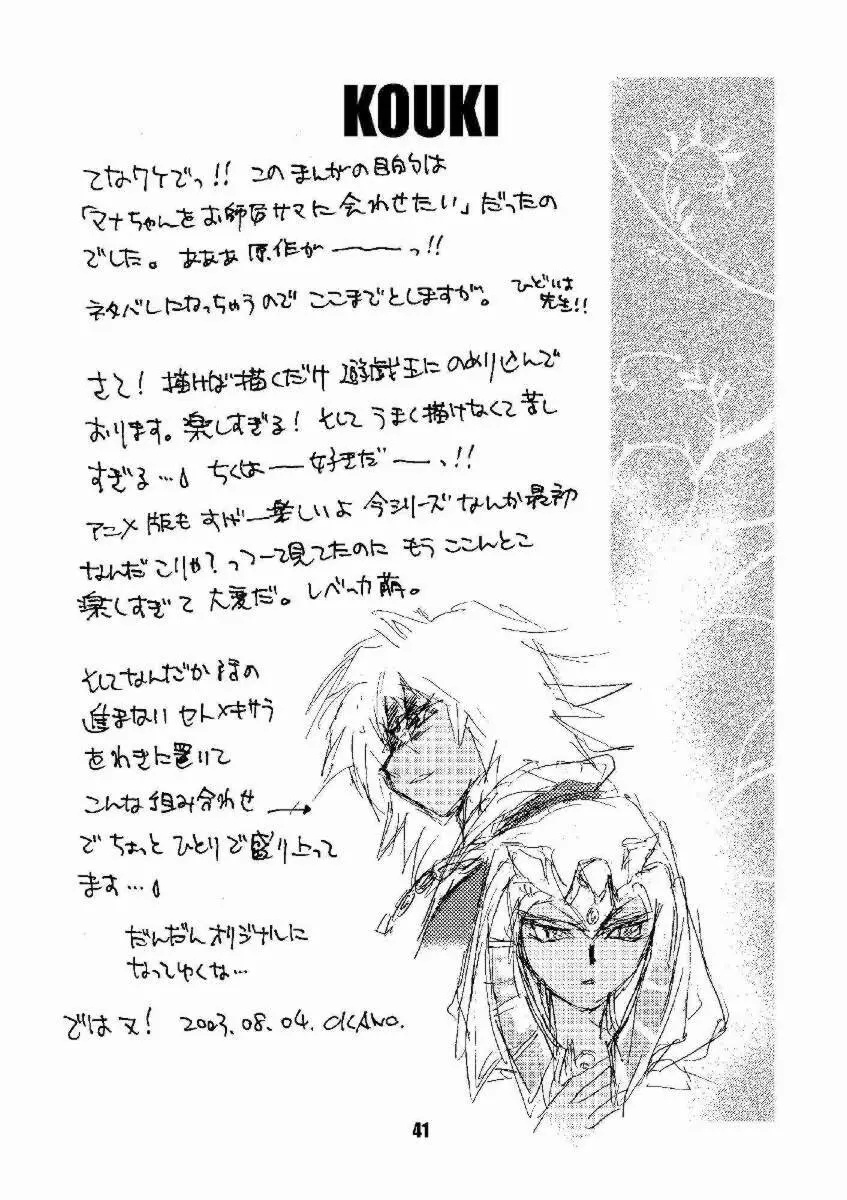 KOUKI
てなワケでっ!! このまんがの目的は
「マナちゃんをお師匠サマに会わせたい」だったの
でした。あああ原作が———っ!!
ネタバレになっちゃうので ここまでとしますが。
ひどいは
先生!!
さて! 描けば描くだけ 遊戯王に のめり込んで
おります。楽しすぎる! そして うまく描けなくて苦し
すぎる…。ちくは——好きだ——っ!!
アニメ版も すげー楽しいよ 今シリーズ なんか最初
なんだこりゃ?っつーて見てたのに もう ここんとこ
楽しすぎて 大変だ。レベッカ萌。
そしてなんだか 話の
進まない セト×キサラ
をわきに置いて
こんな組み合わせ →
で ちょっと ひとりで盛り上って
ます…。
だんだんオリジナルに
なってゆくな…
ではヌ! 2003.08.04. OKANO.
41